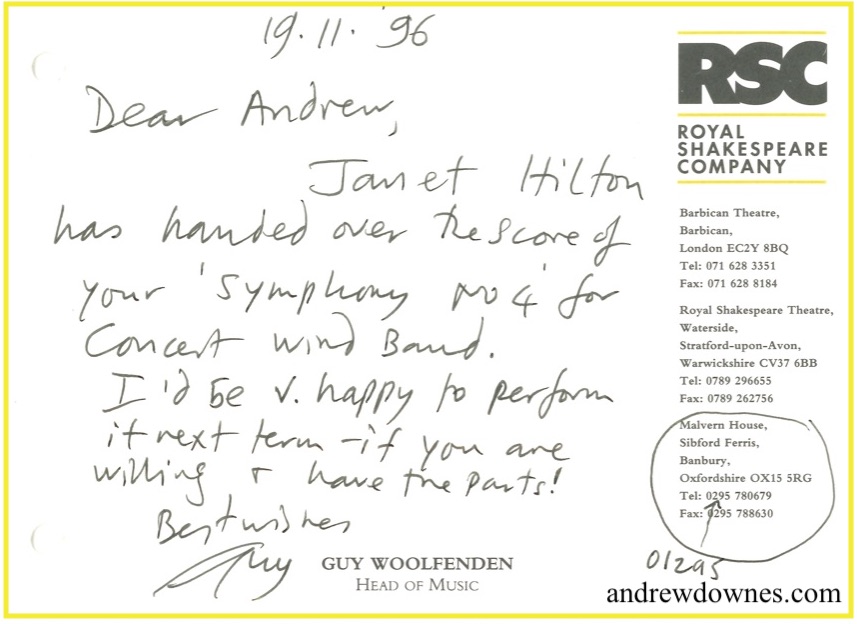 19.11.'96
Dear Andrew,
Janet Hilton
has handed over the score of
your 'Symphony No 4' for
Concert Wind Band.
I'd be v. happy to perform
it next term - if you are
willing + have the parts!
Best wishes
Guy
GUY WOOLFENDEN
HEAD OF MUSIC
RSC
ROYAL
SHAKESPEARE
COMPANY
Barbican Theatre,
Barbican,
London EC2Y 8BQ
Tel: 071 628 3351
Fax: 071 628 8184
Royal Shakespeare Theatre,
Waterside,
Stratford-upon-Avon,
Warwickshire CV37 6BB
Tel: 0789 296655
Fax: 0789 262756
Malvern House,
Sibford Ferris,
Banbury,
Oxfordshire OX15 5RG
Tel: 0295 780679
Fax: 0295 788630
01295
andrewdownes.com